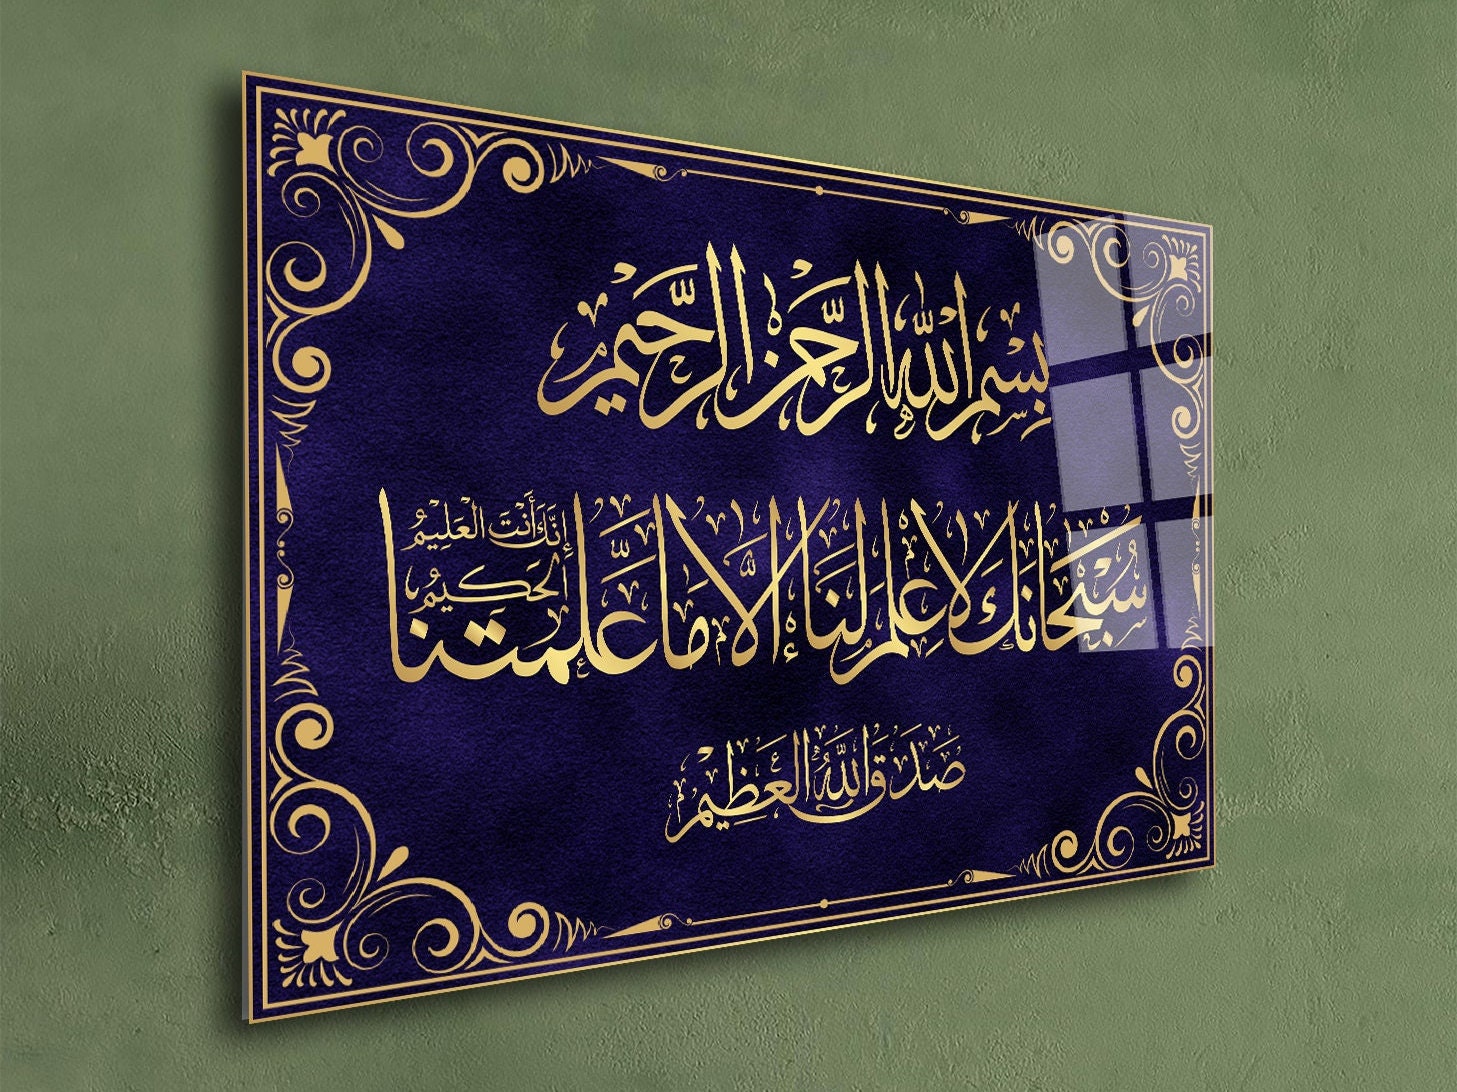 بِسْمِ اللهِ الرَّحْمنِ الرَّحِيمِ
سُبْحَانَكَ لَا عِلْمَ لَنَا إِلَّا مَا عَلَّمْتَنَا إِنَّكَ أَنْتَ الْعَلِيمُ
الْحَكِيمُ
صَدَقَ اللهُ الْعَظِيمُ